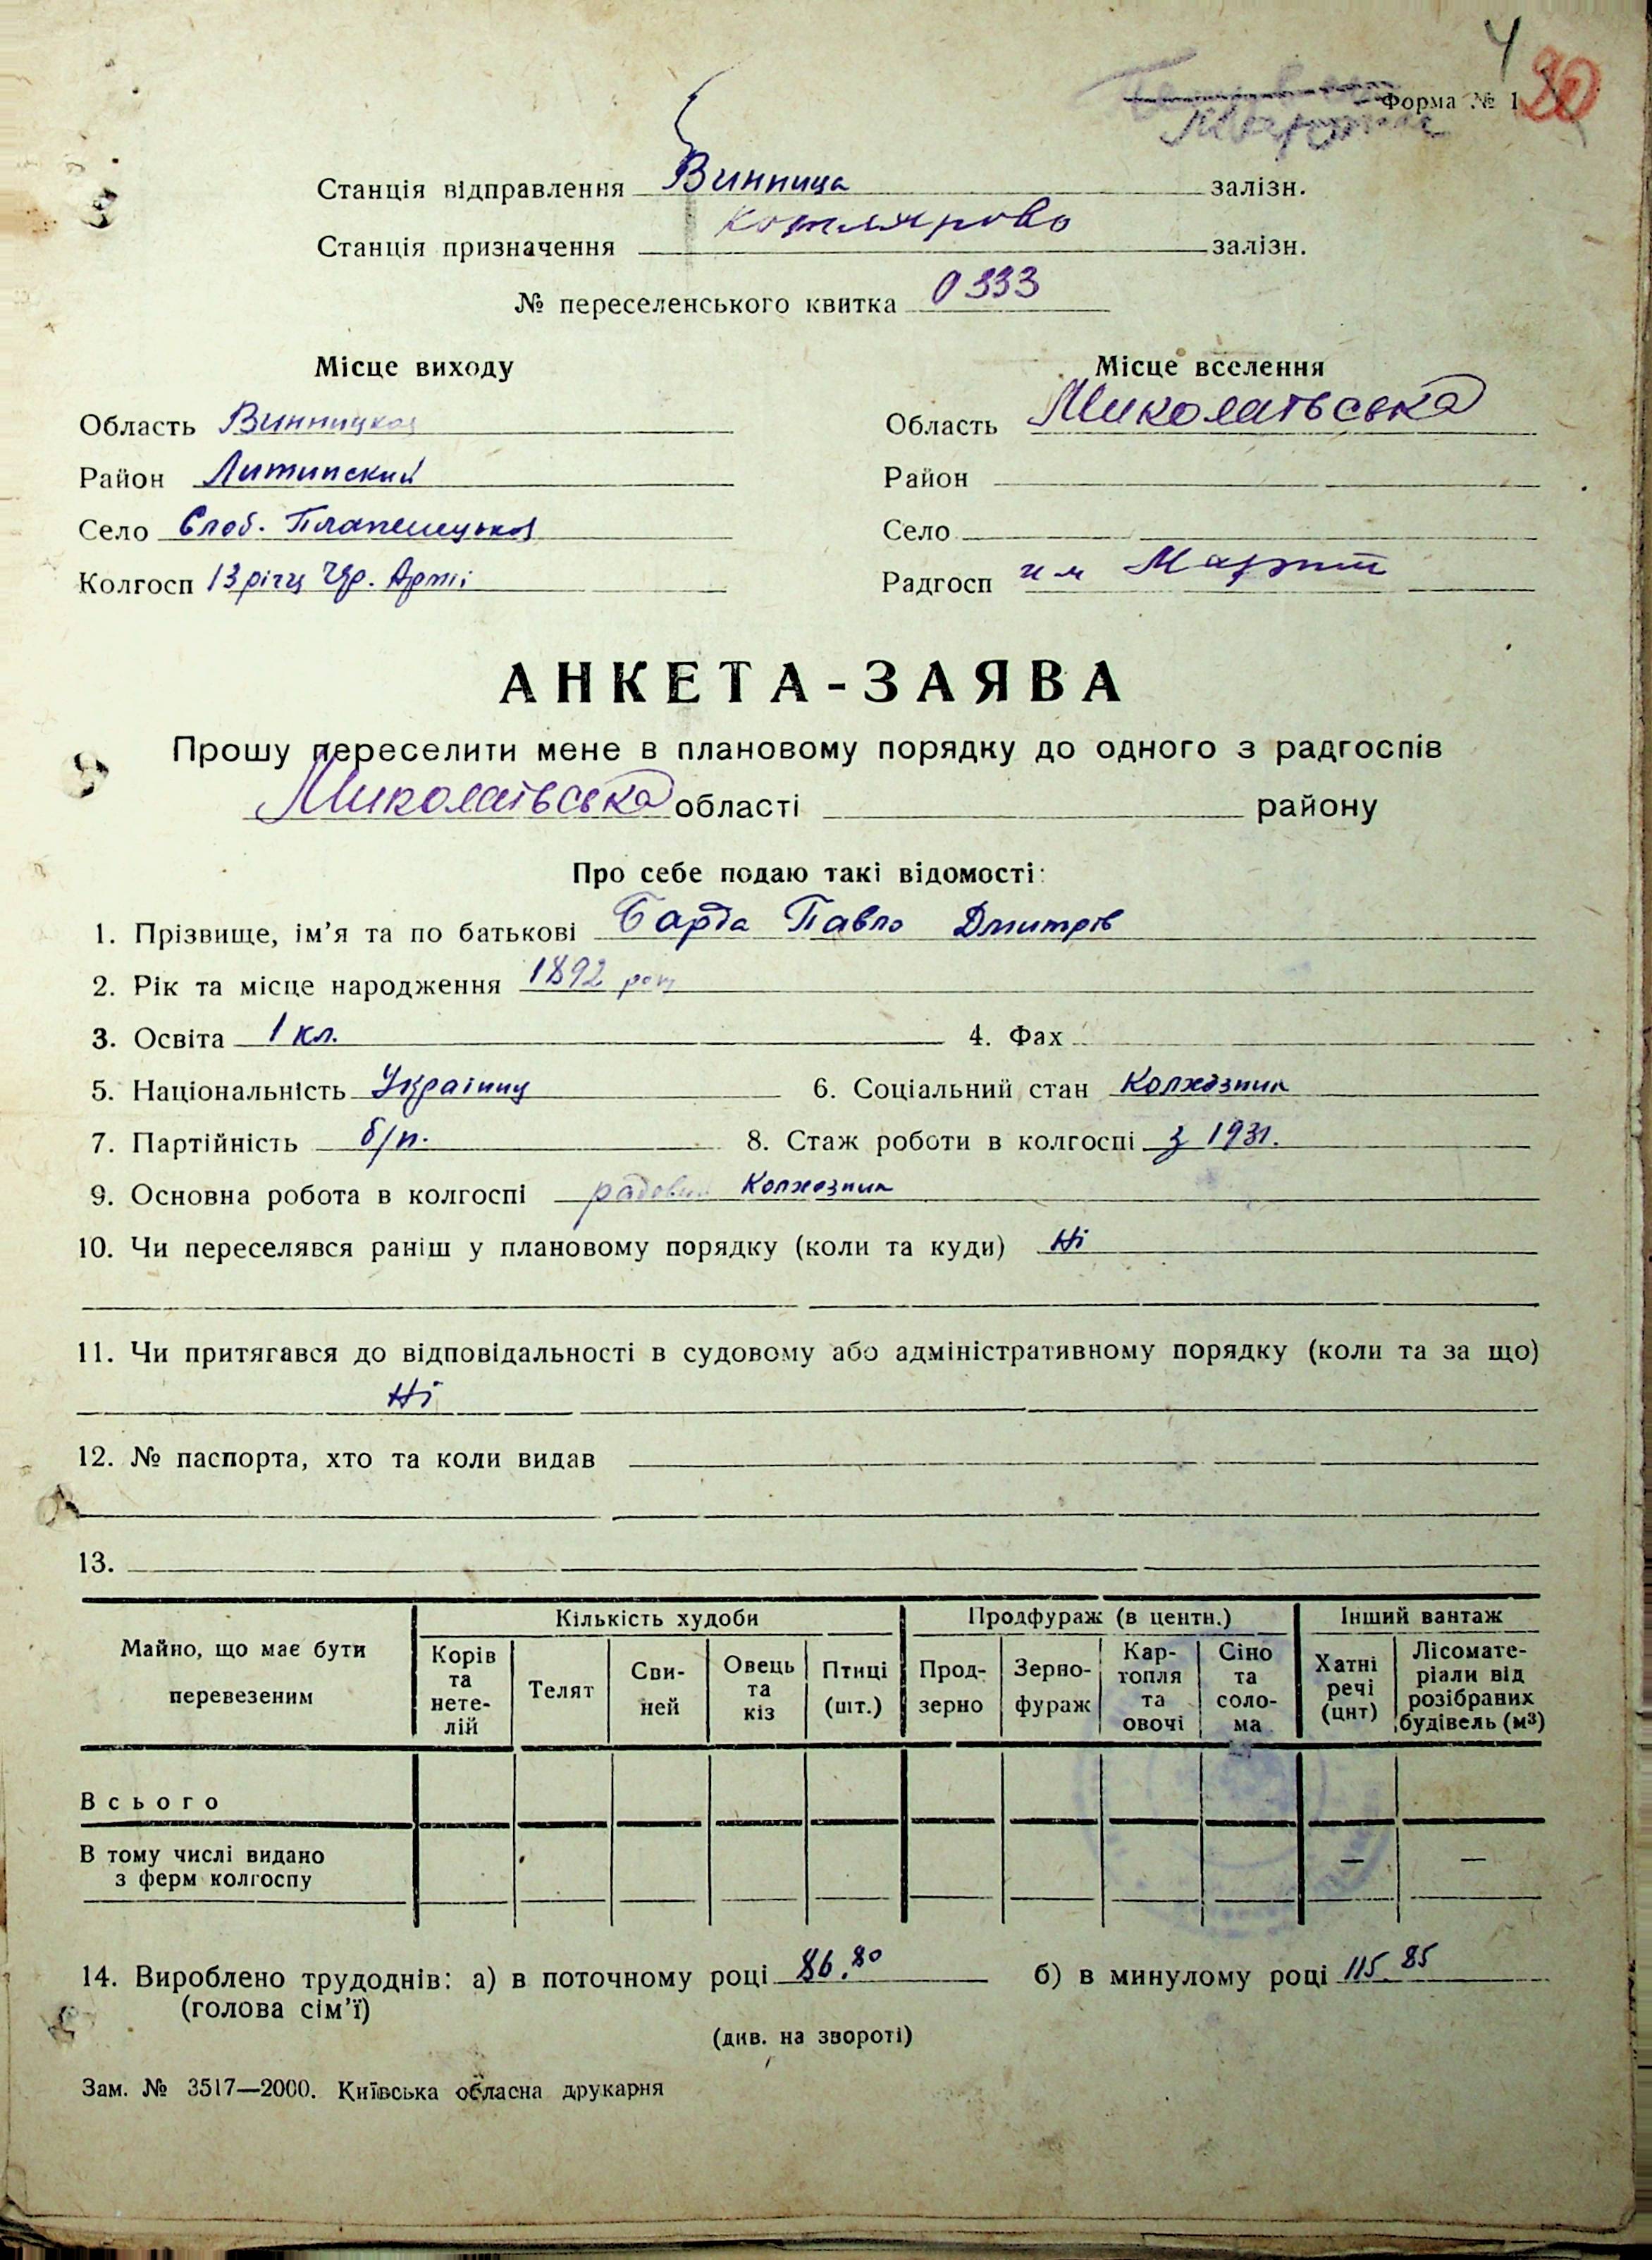 4
80
Форма № 1
Станція відправлення Винница залізн.
Станція призначення Котлярово залізн.
№ переселенського квитка 0333
Місце виходу
Місце вселення
Область Винницкая
Область Миколаївська
Район Литинский
Район
Село Слоб.
Село
Колгосп 13 річч Чр. Армії
Радгосп им Марти
АНКЕТА-ЗАЯВА
Прошу переселити мене в плановому порядку до одного з радгоспів
Миколаївська області району
Про себе подаю такі відомості:
1. Прізвище, ім’я та по батькові Барда Павло Дмитрів
2. Рік та місце народження 1892 роц
3. Освіта 1 кл. 4. Фах
5. Національність Українец 6. Соціальний стан Колхозник
7. Партійність б/п. 8. Стаж роботи в колгоспі з 1931.
9. Основна робота в колгоспі радовий Колхозник
10. Чи переселявся раніш у плановому порядку (коли та куди) Ні
11. Чи притягався до відповідальності в судовому або адміністративному порядку (коли та за що)
Ні
12. № паспорта, хто та коли видав
13.
Майно, що має бути перевезеним
Кількість худоби
Продфураж (в центн.)
Інший вантаж
Корів та нетелій
Телят
Свиней
Овець та кіз
Птиці (шт.)
Продзерно
Зернофураж
Картопля та овочі
Сіно та солома
Хатні речі (цнт)
Лісоматеріали від розібраних будівель (м³)
Всього
В тому числі видано з ферм колгоспу — —
14. Вироблено трудоднів: а) в поточному році 86.80 б) в минулому році 115.85
(голова сім’ї)
(див. на звороті)
Зам. № 3517—2000. Київська обласна друкарня